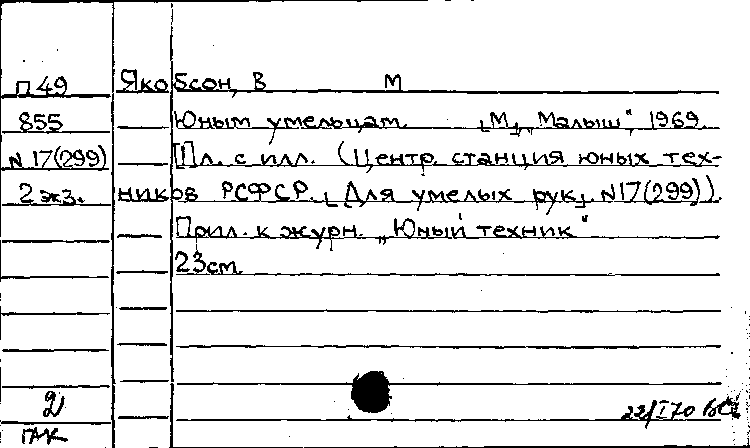 П 49 Якобсон, В М
855 Юным умельцам. [М], „Малыш“, 1969.
N 17(299) Пл. с илл. (Центр. станция юных тех-
2 экз. ников РСФСР. [Для умелых рук]. N17(299)).
Прил. к журн. „Юный техник“
23см
2)
22/I 70
ГАК